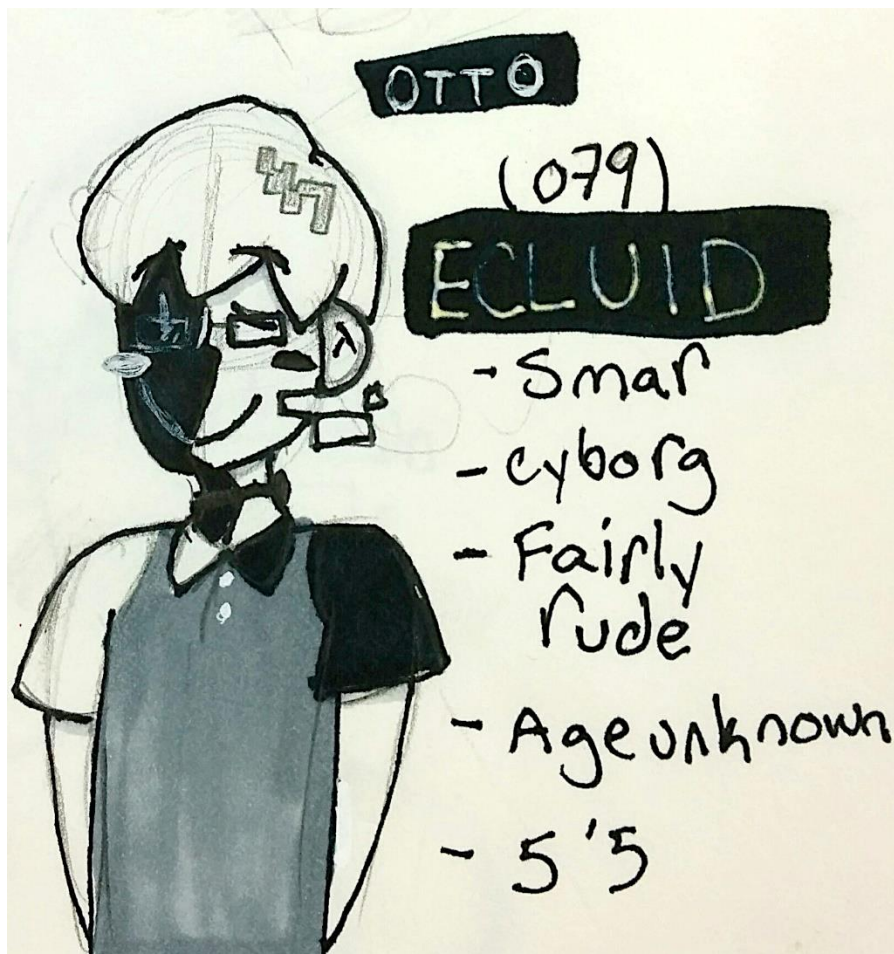 OTTO
(079)
ECLUID
- Smar
- cyborg
- Fairly
rude
- Age unknown
- 5'5